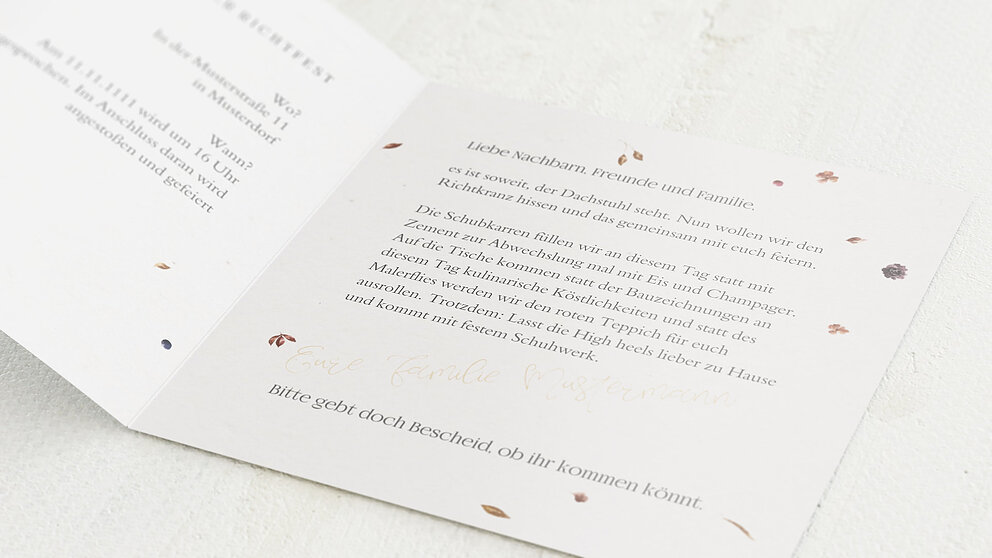 RICHTFEST
Wo?
In der Musterstraße 11
in Musterdorf
Wann?
Am 11.11.1111 wird um 16 Uhr
gesprochen. Im Anschluss daran wird
angestoßen und gefeiert
Liebe Nachbarn, Freunde und Familie,
es ist soweit, der Dachstuhl steht. Nun wollen wir den
Richtkranz hissen und das gemeinsam mit euch feiern.
Die Schubkarten füllen wir an diesem Tag statt mit
Zement zur Abwechslung mal mit Eis und Champager.
Auf die Tische kommen statt der Bauzeichnungen an
diesem Tag kulinarische Köstlichkeiten und statt des
Malerflies werden wir den roten Teppich für euch
ausrollen. Trotzdem: Lasst die High heels lieber zu Hause
und kommt mit festem Schuhwerk.
Eure Familie Mustermann
Bitte gebt doch Bescheid, ob ihr kommen könnt.